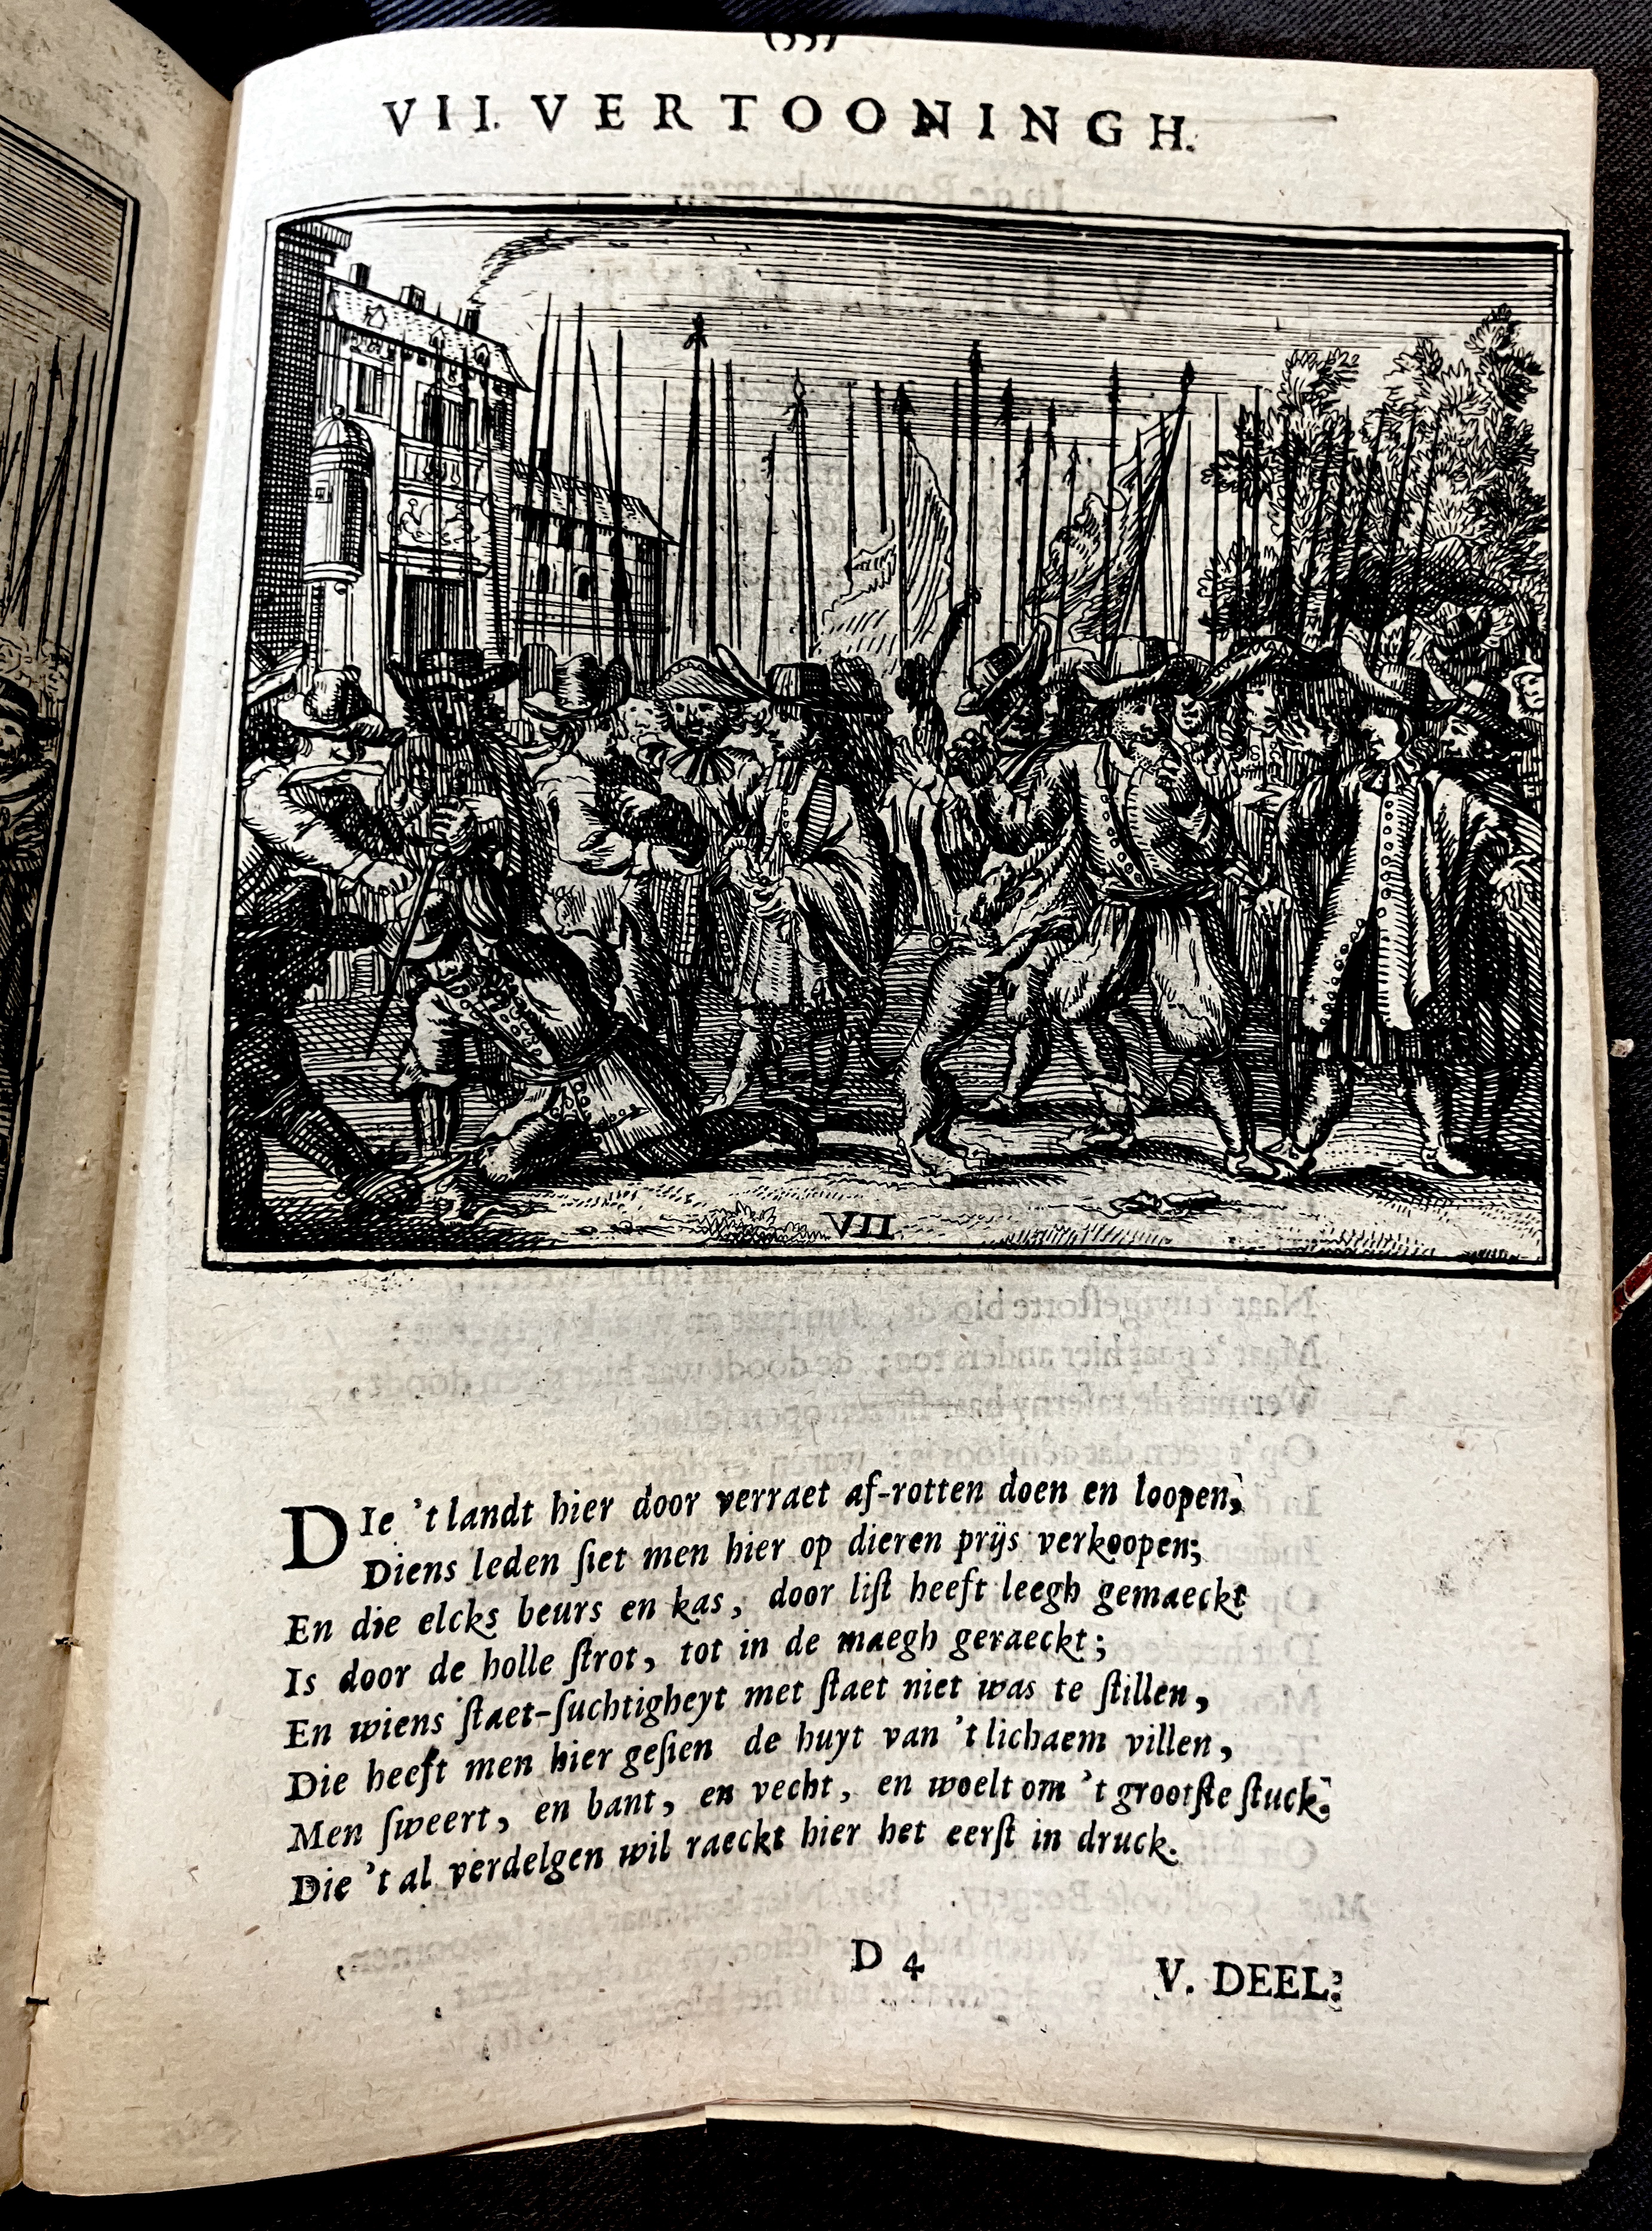 (55)
VII. VERTOONINGH.
VII
DIe 't landt hier door verraet af-rotten doen en loopen,
Diens leden ſiet men hier op dieren prijs verkoopen;
En die elcks beurs en kas, door liſt heeft leegh gemaeckt
Is door de holle ſtrot, tot in de maegh geraeckt;
En wiens ſtaet-ſuchtigheyt met ſtaet niet was te ſtillen,
Die heeft men hier geſien de huyt van 't lichaem villen,
Men ſweert, en bant, en vecht, en woelt om 't grootſte ſtuck.
Die 't al verdelgen wil raeckt hier het eerſt in druck.
D 4
V. DEEL: